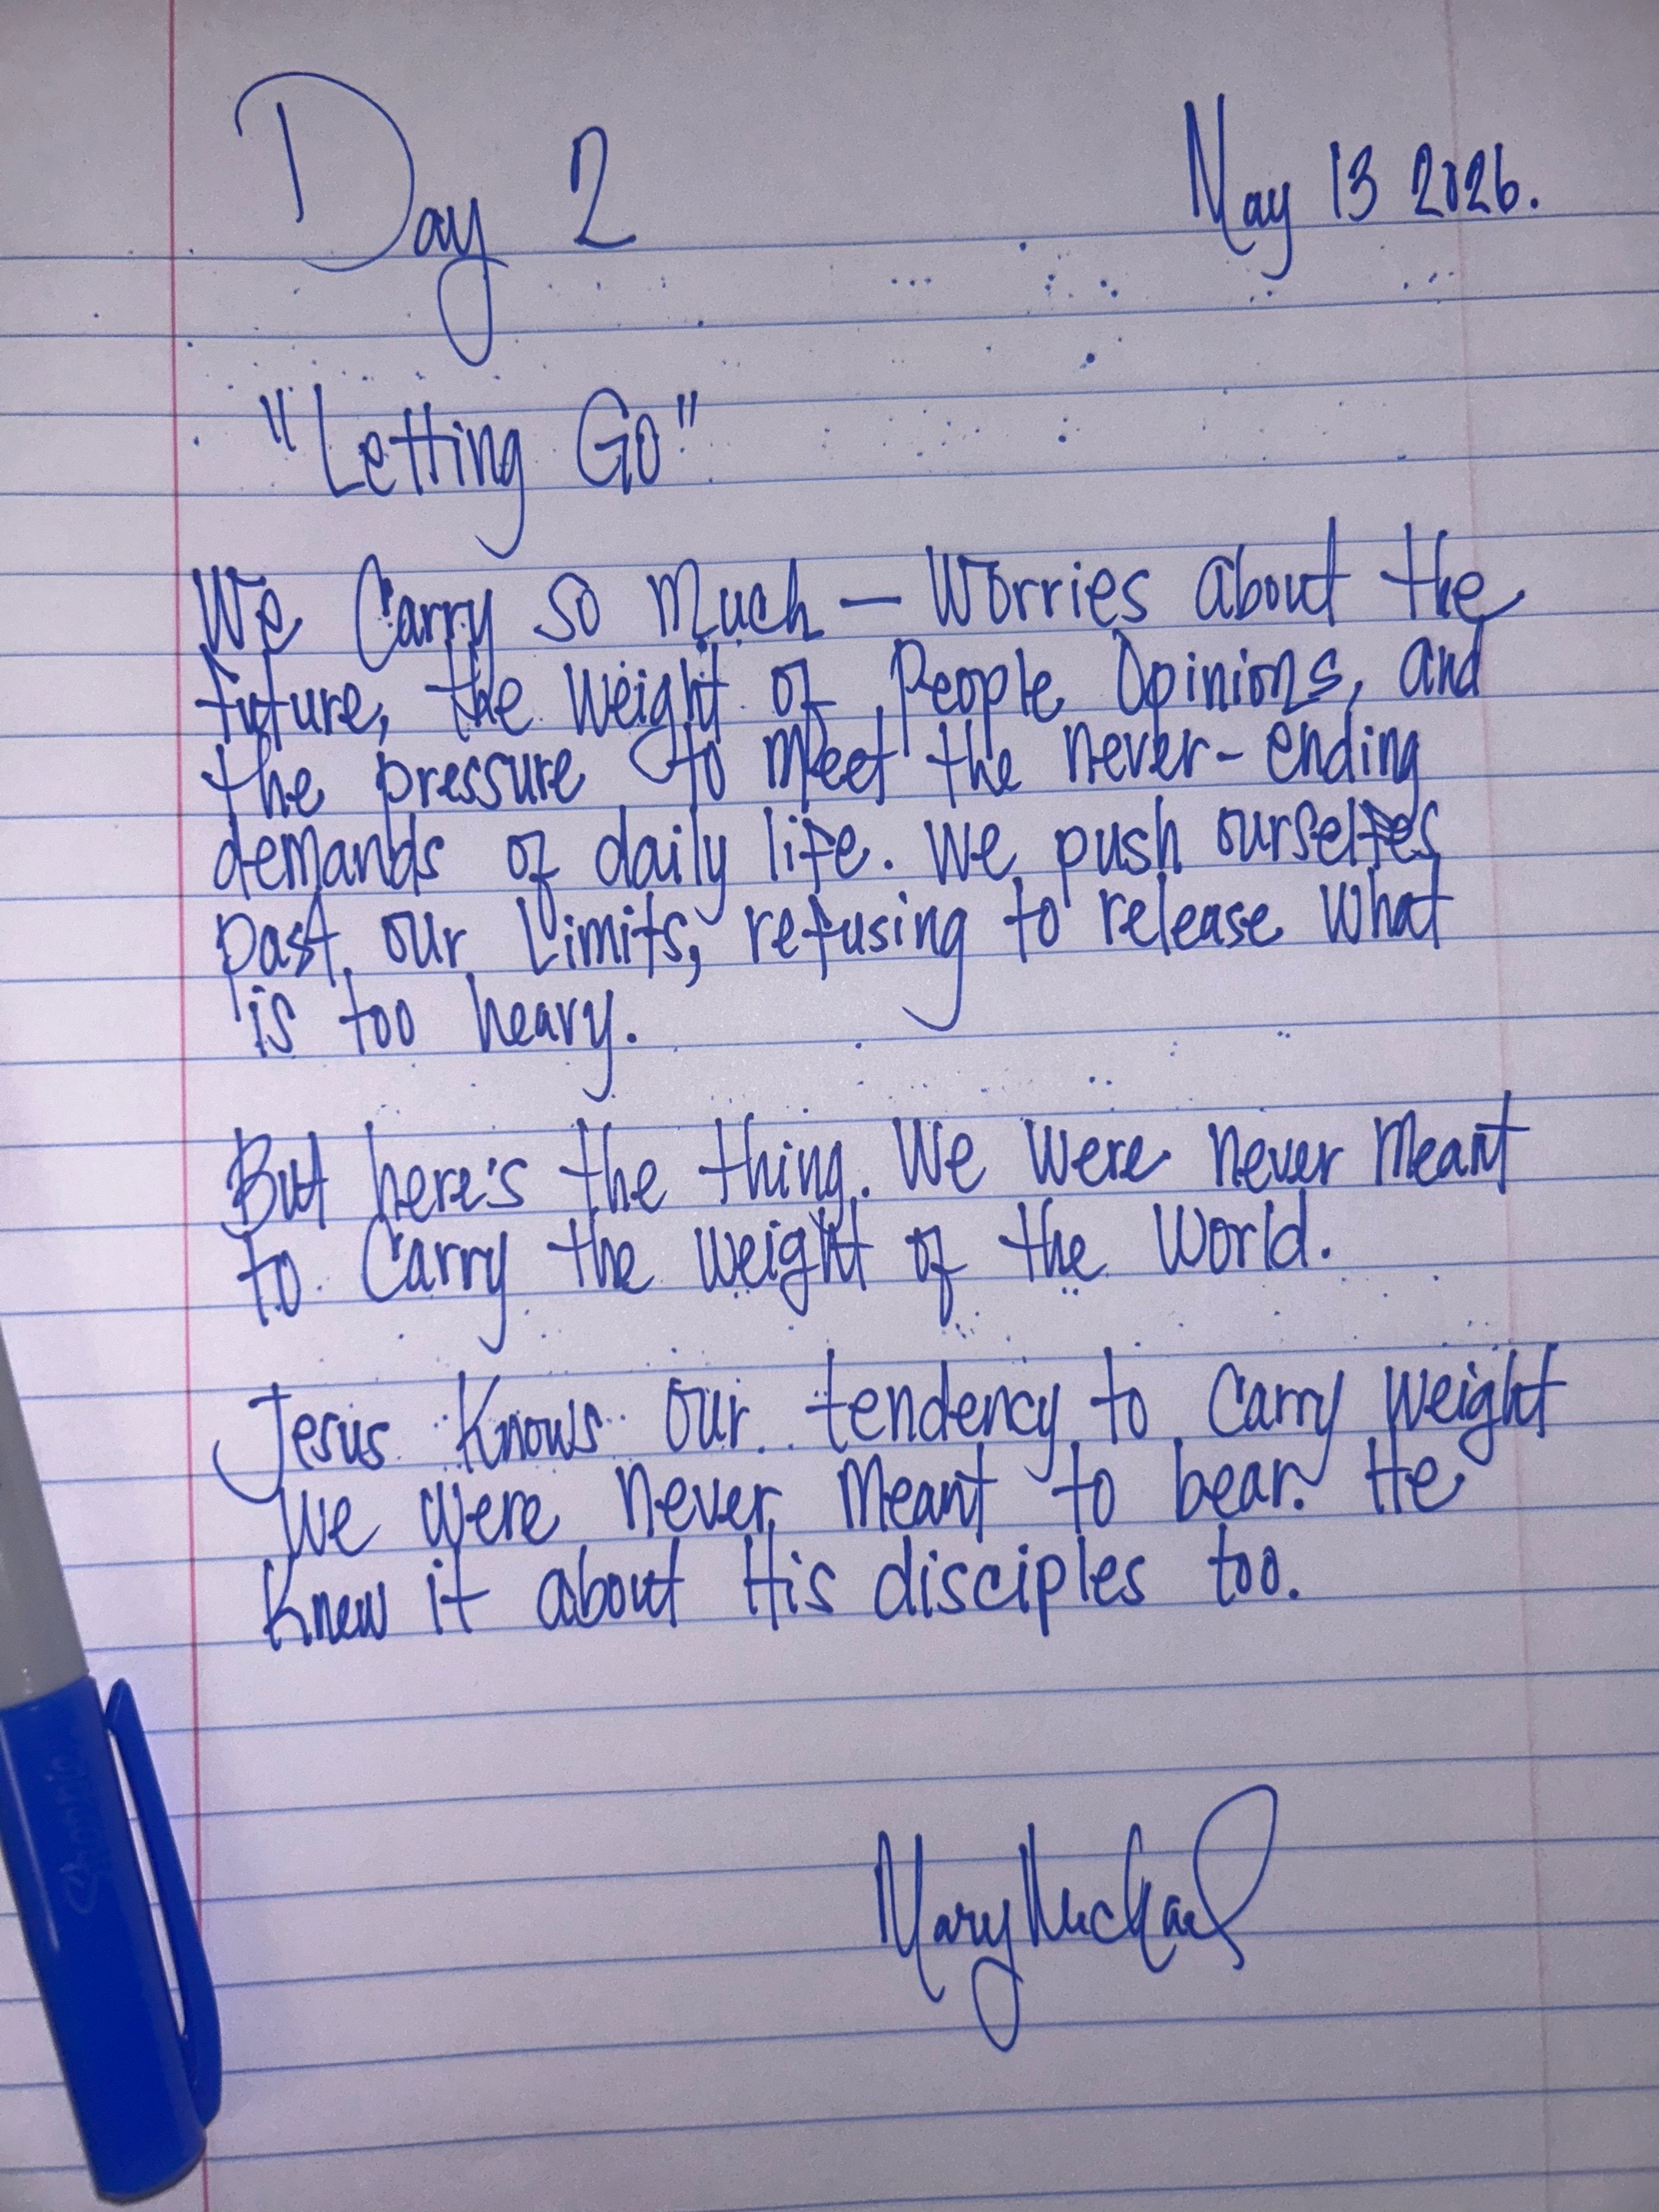 Day 2
May 13 2026.
"Letting Go"
We Carry so Much — Worries about the
future, the Weight of People Opinions, and
the pressure to Meet the never-ending
demands of daily life. We push ourselfes
past our Limits, refusing to release What
is too heavy.
But here's the thing. We Were never Meant
to Carry the Weight of the World.
Jesus Knows our tendency to Carry Weight
We Were never Meant to bear. He
Knew it about His disciples too.
Mary Michael
Sharpie